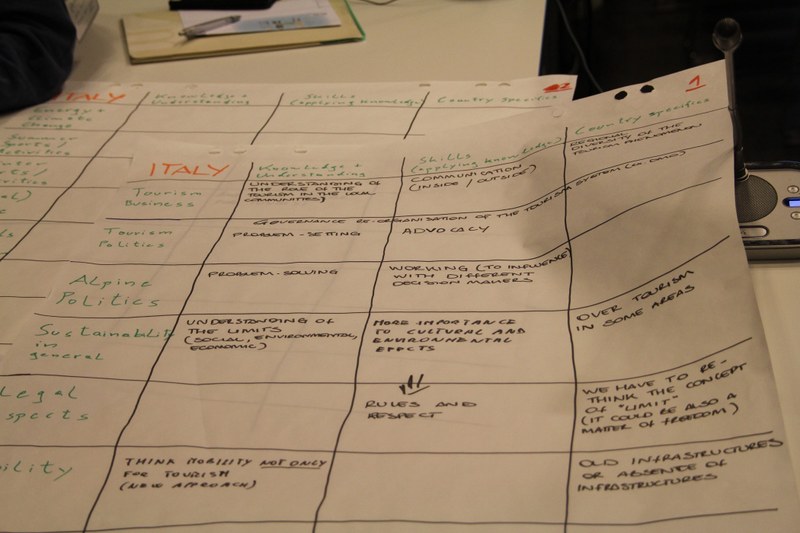 ITALY
Knowledge +
Understanding
Skills
(applying knowledge)
Country specifics
2
Energy +
Climate
Change
Summer
Sports /
1
ITALY
Knowledge +
Understanding
Skills
(applying knowledge)
Country specifics
Tourism
Business
UNDERSTANDING OF
THE ROLE OF THE
TOURISM IN THE LOCAL
COMMUNITIES)
COMMUNICATION
(INSIDE / OUTSIDE)
REGIONAL
DIVERSITY OF THE
TOURISM PHENOMENON
GOVERNANCE RE-ORGANISATION OF THE TOURISM SYSTEM (ex. DMO)
Tourism
Politics
PROBLEM-SETTING
ADVOCACY
Alpine
Politics
PROBLEM-SOLVING
WORKING (TO INFLUENCE)
WITH DIFFERENT
DECISION MAKERS
Sustainability
in
general
UNDERSTANDING OF
THE LIMITS
(SOCIAL, ENVIRONMENTAL,
ECONOMIC)
MORE IMPORTANCE
TO CULTURAL AND
ENVIRONMENTAL
EFFECTS
OVER TOURISM
IN SOME AREAS
Legal
spects
RULES AND
RESPECT
WE HAVE TO RE-
THINK THE CONCEPT
OF "LIMIT"
(IT COULD BE ALSO A
MATTER OF FREEDOM)
bility
THINK MOBILITY NOT ONLY
FOR TOURISM
(NEW APPROACH)
OLD INFRASTRUCTURES
OR ABSENCE OF
INFRASTRUCTURES